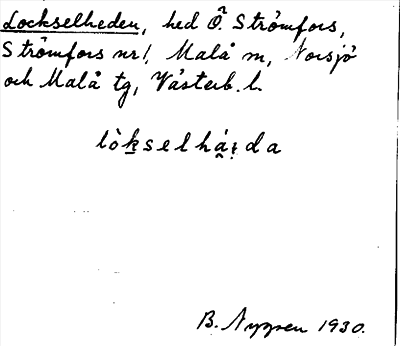 Lockselheden, hed Ö. Strömfors,
Strömfors nr 1, Malå sn, Norsjö
och Malå tg, Västerb. l.
lòkselhá̯i̯da
B. Nygren 1930.